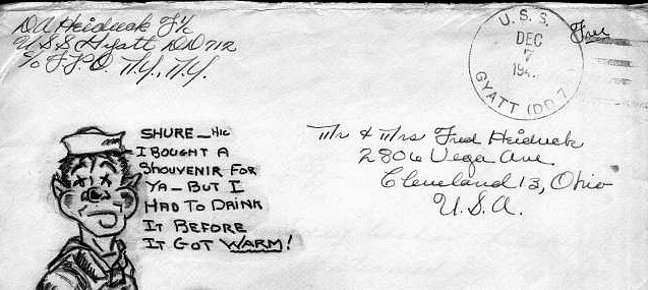 D A Heiduck F 1/c
U.S.S Gyatt DD 712
c/o F.P.O. N.Y., N.Y.
U. S. S.
DEC
7
194
GYATT (DD 7
Free
SHURE - HIC
I BOUGHT A
SHOUVENIR FOR
YA - BUT I
HAD TO DRINK
IT BEFORE
IT GOT WARM!
Mr & Mrs Fred Heiduck
2806 Vega Ave
Cleveland 13, Ohio
U.S.A.